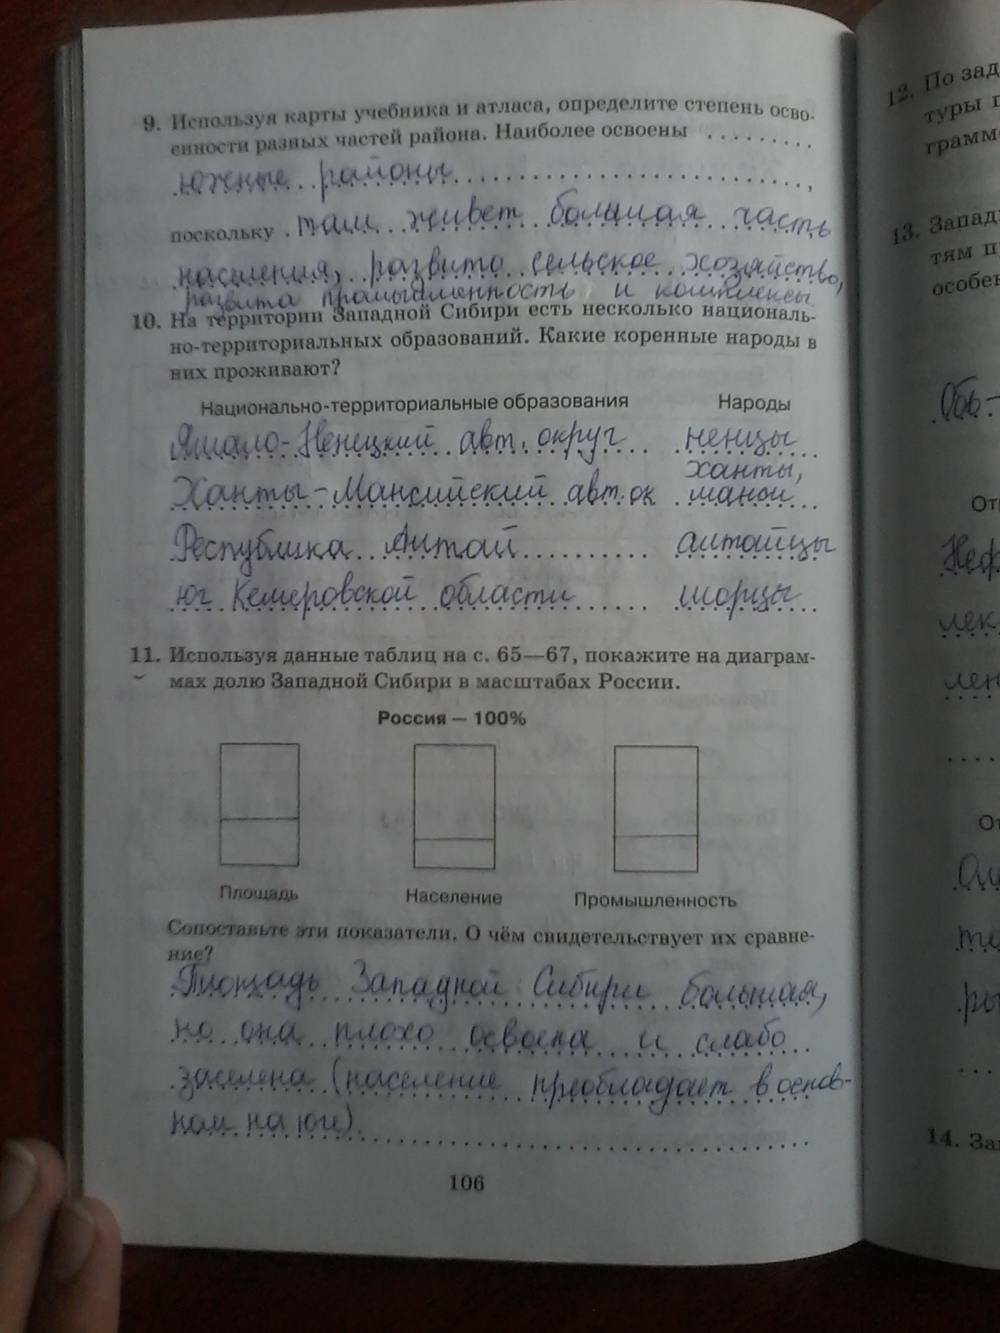 9. Используя карты учебника и атласа, определите степень осво-
енности разных частей района. Наиболее освоены ..........
южные районы
поскольку там живет большая часть
населения, развито сельское хозяйство,
развита промышленность и комплексы
10. На территории Западной Сибири есть несколько националь-
но-территориальных образований. Какие коренные народы в
них проживают?
Национально-территориальные образования Народы
Ямало-Ненецкий авт. округ ненцы
Ханты-Мансийский авт. ок ханты, манси
Республика Алтай алтайцы
юг Кемеровской области шорцы
11. Используя данные таблиц на с. 65—67, покажите на диаграм-
мах долю Западной Сибири в масштабах России.
Россия — 100%
Площадь Население Промышленность
Сопоставьте эти показатели. О чём свидетельствует их сравне-
ние?
Площадь Западной Сибири большая,
но она плохо освоена и слабо
заселена (население преобладает в основ-
ном на юге).
106
12. По зад
туры п
грамм
13. Запад
тям п
особен
Обь-
От
Неф
лек
лен
От
14. За